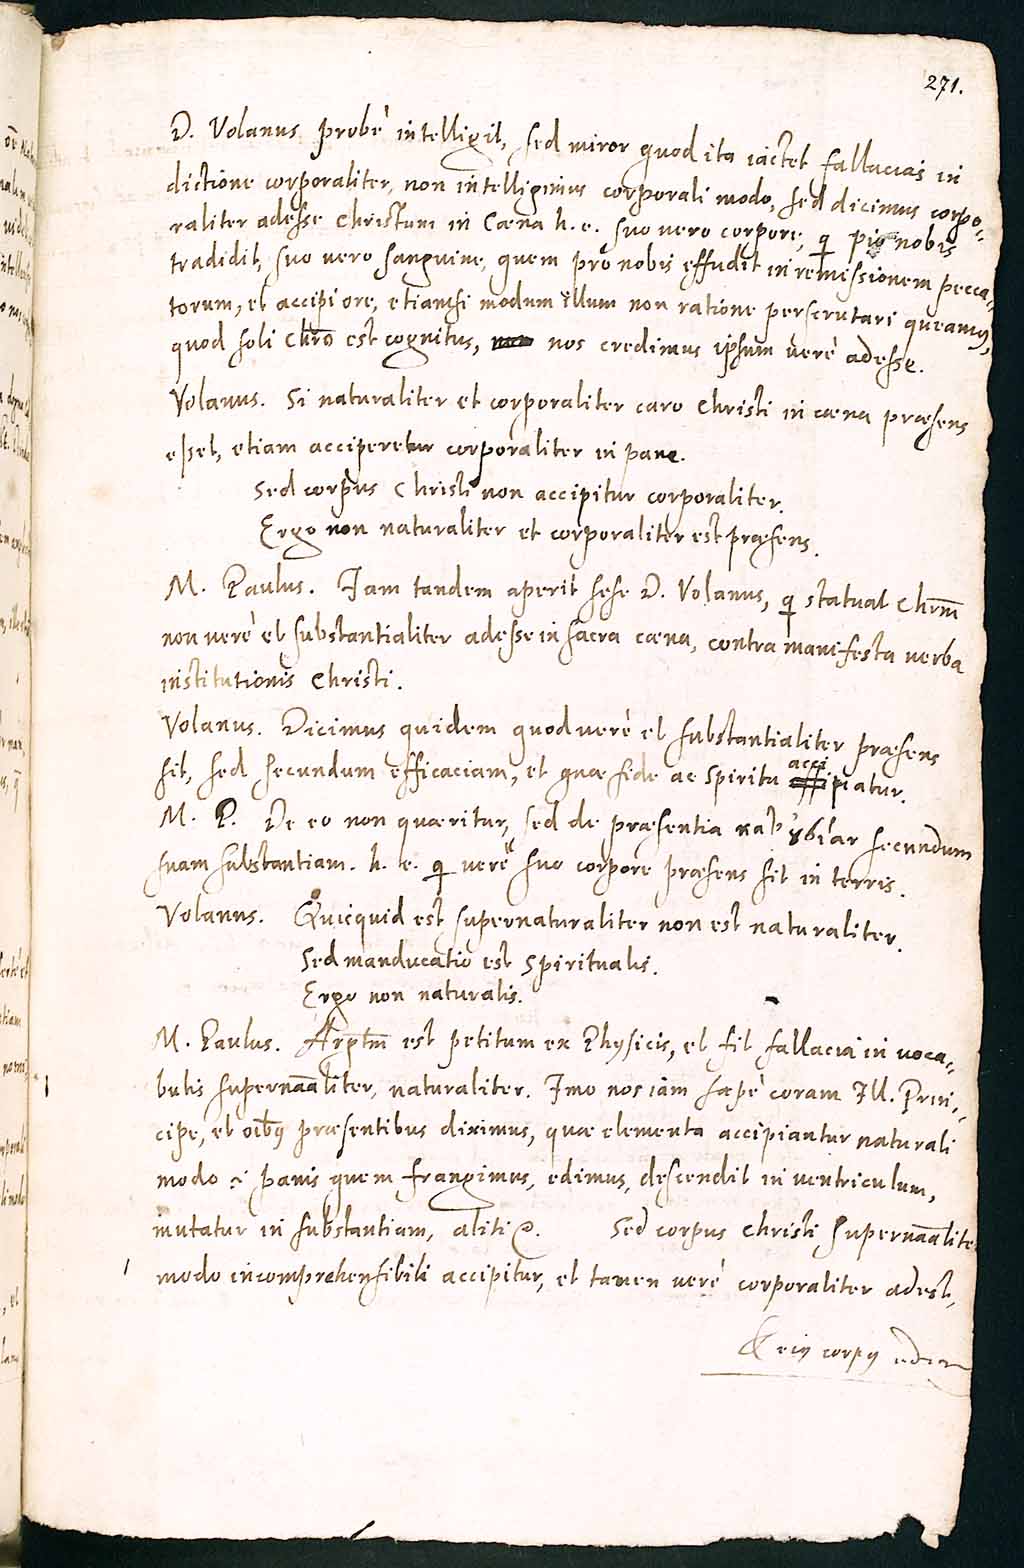 271.
D. Volanus probè intelligit, sed miror quod ita iactet fallacias in
dictione corporaliter, non intelligimus corporali modo, sed dicimus corpo-
raliter adesse Christum in Cæna h. e. suo vero corpore, q pro nobis
tradidit, suo vero sanguine, quem pro nobis effudit in remissionem pecca-
torum, et accipi ore, etiamsi modum illum non ratione perscrutari queamus,
quod soli Chro est cognitus, nos credimus ipsum verè adesse.
Volanus. Si naturaliter et corporaliter caro Christi in cæna præsens
esset, etiam acciperetur corporaliter in pane.
Sed corpus Christi non accipitur corporaliter.
Ergo non naturaliter et corporaliter est præsens.
M. Paulus. Iam tandem aperit sese D. Volanus, q statuat Chrm
non verè et substantialiter adesse in sacra cæna, contra manifesta verba
institutionis Christi.
Volanus. Dicimus quidem quod verè et substantialiter præsens
sit, sed secundum efficaciam, et quæ fide ac spiritu accipiatur.
M. P. De eo non quæritur, sed de præsentia secundum
suam substantiam. h. e. q verè suo corpore præsens sit in terris.
Volanus. Quicquid est supernaturaliter non est naturaliter.
Sed manducatio est spiritualis.
Ergo non naturalis.
M. Paulus. Argtm est petitum ex Physicis, et fit fallacia in voca-
bulis supernaaliter, naturaliter. Imo nos iam sæpè coram Ill. Prin-
cipe, et oibus præsentibus diximus, quæ elementa accipiantur naturali
modo i panis quem frangimus, edimus, descendit in ventriculum,
mutatur in substantiam, aliti Sed corpus Christi supernaalite
modo incomprehensibili accipitur, et tamen verè corporaliter adest,
& eius corpus